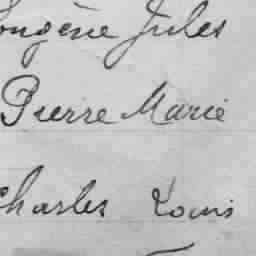 Eugène Jules
Pierre Marie
Charles Louis